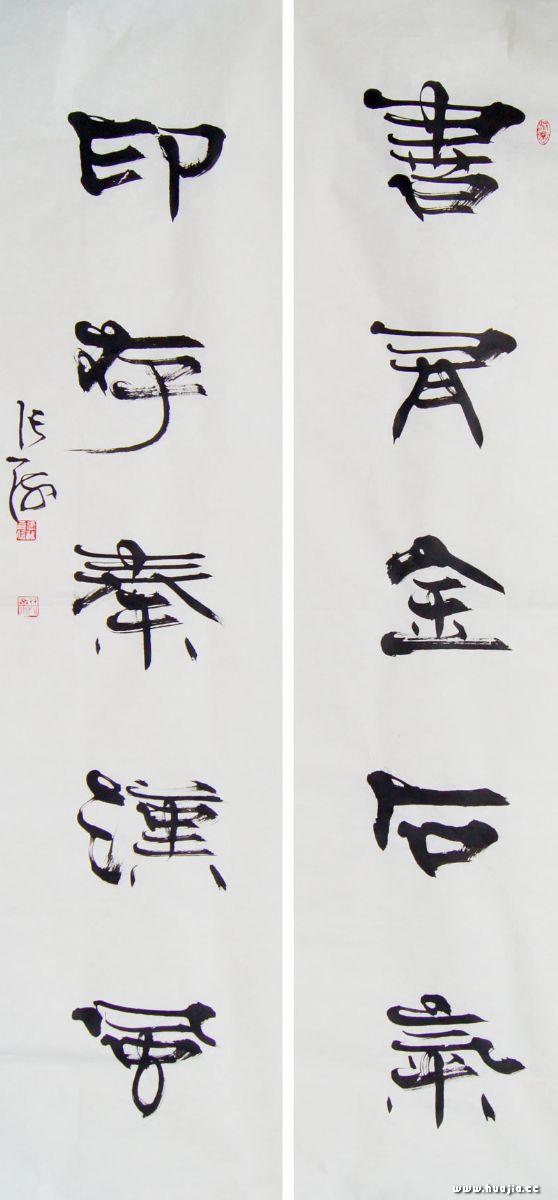 書有金石氣
印存秦漢風
张
www.huajia.cc